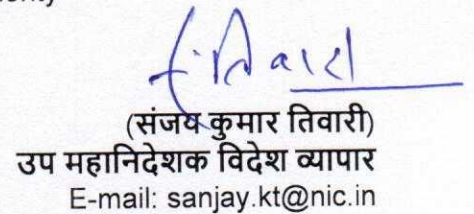 (संजय कुमार तिवारी)
उप महानिदेशक विदेश व्यापार
E-mail: sanjay.kt@nic.in